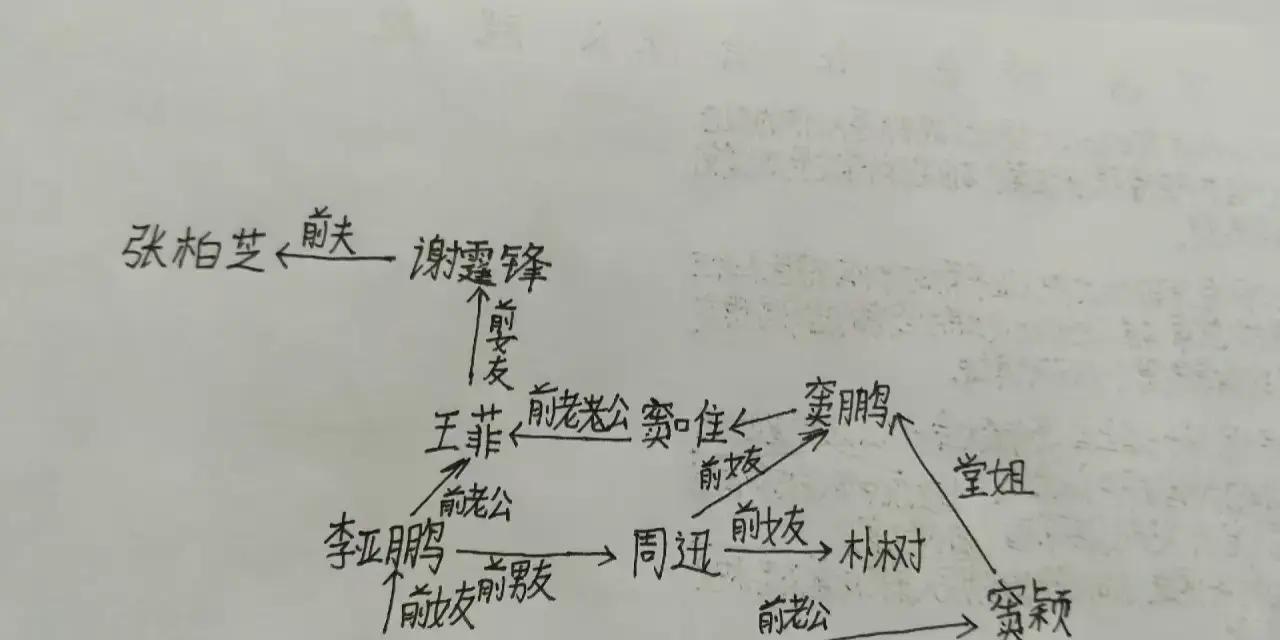 前夫
张柏芝 谢霆锋
前女友
前老老公 窦鹏
王菲 窦口住
前女友
堂姐
前老公
李亚鹏 周迅 前女友 朴树
前男友
前女友 窦颖
前老公